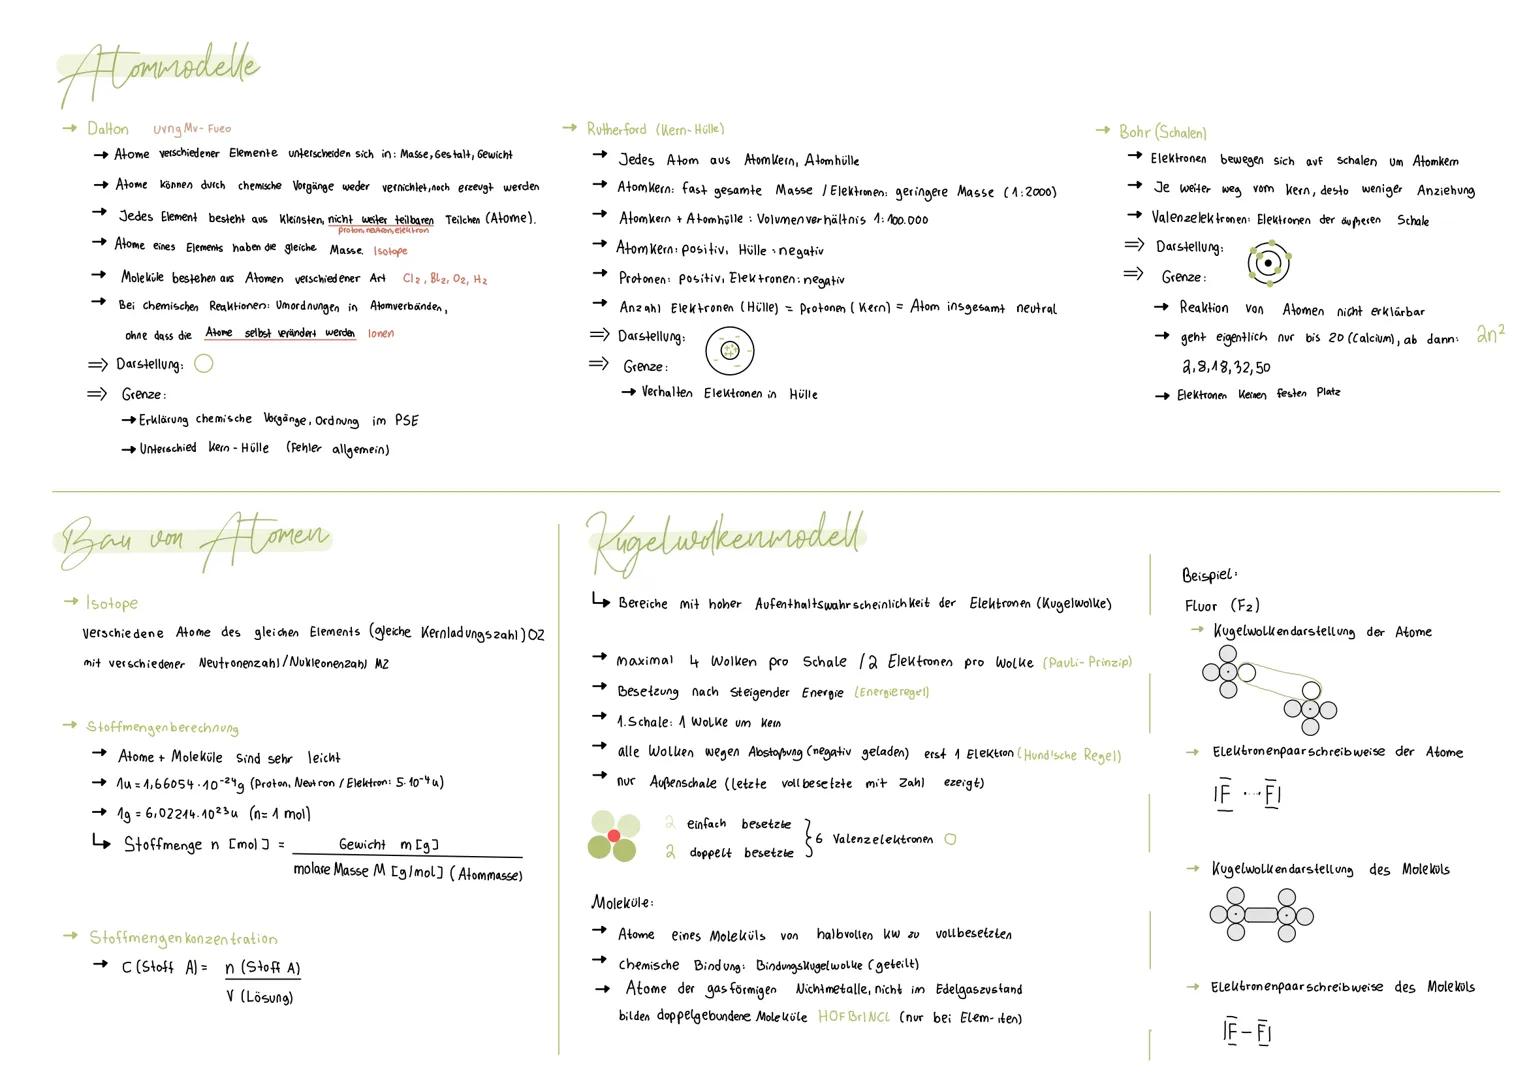 Atommodelle
→ Dalton UVngMv-Fueo
→ Atome verschiedener Elemente unterscheiden sich in: Masse, Gestalt, Gewicht
→ Atome können durch chemische Vorgänge weder vernichtet, noch erzeugt werden
→ Jedes Element besteht aus kleinsten, nicht weiter teilbaren Teilchen (Atome).
proton, neutron, elektron
→ Atome eines Elements haben die gleiche Masse. Isotope
→ Moleküle bestehen aus Atomen verschiedener Art Cl2, BL2, O2, H2
→ Bei chemischen Reaktionen: Umordnungen in Atomverbänden,
ohne dass die Atome selbst verändert werden Ionen
⇒ Darstellung:
⇒ Grenze:
→ Erklärung chemische Vorgänge, Ordnung im PSE
→ Unterschied Kern-Hülle (Fehler allgemein)
→ Rutherford (Kern-Hülle)
→ Jedes Atom aus Atomkern, Atomhülle
→ Atomkern: fast gesamte Masse / Elektronen: geringere Masse (1:2000)
→ Atomkern + Atomhülle: Volumenverhältnis 1:100.000
→ Atomkern: positiv, Hülle: negativ
→ Protonen: positiv, Elektronen: negativ
→ Anzahl Elektronen (Hülle) = Protonen (Kern) = Atom insgesamt neutral
⇒ Darstellung:
⇒ Grenze:
→ Verhalten Elektronen in Hülle
→ Bohr (Schalen)
→ Elektronen bewegen sich auf Schalen um Atomkern
→ Je weiter weg vom Kern, desto weniger Anziehung
→ Valenzelektronen: Elektronen der äußeren Schale
⇒ Darstellung:
⇒ Grenze:
→ Reaktion von Atomen nicht erklärbar
→ geht eigentlich nur bis 20 (Calcium), ab dann: 2n²
2,8,18,32,50
→ Elektronen keinen festen Platz
Bau von Atomen
→ Isotope
Verschiedene Atome des gleichen Elements (gleiche Kernladungszahl) OZ
mit verschiedener Neutronenzahl/Nukleonenzahl MZ
→ Stoffmengenberechnung
→ Atome + Moleküle sind sehr leicht
→ 1u = 1,66054·10⁻²⁴g (Proton, Neutron / Elektron: 5·10⁻⁴u)
→ 1g = 6,02214·10²³u (n= 1 mol)
↳ Stoffmenge n [mol] = Gewicht m [g]
molare Masse M [g/mol] (Atommasse)
→ Stoffmengenkonzentration
→ C (Stoff A) = n (Stoff A)
V (Lösung)
Kugelwolkenmodell
↳ Bereiche mit hoher Aufenthaltswahrscheinlichkeit der Elektronen (Kugelwolke)
→ maximal 4 Wolken pro Schale / 2 Elektronen pro Wolke (Pauli-Prinzip)
→ Besetzung nach steigender Energie (Energieregel)
→ 1. Schale: 1 Wolke um Kern
→ alle Wolken wegen Abstoßung (negativ geladen) erst 1 Elektron (Hund'sche Regel)
→ nur Außenschale (letzte vollbesetzte mit Zahl ezeigt)
2 einfach besetzte
2 doppelt besetzte } 6 Valenzelektronen O
Moleküle:
→ Atome eines Moleküls von halbvollen KW zu vollbesetzten
→ chemische Bindung: Bindungskugelwolke (geteilt)
→ Atome der gasförmigen Nichtmetalle, nicht im Edelgaszustand
bilden doppelgebundene Moleküle HOFBrINCl (nur bei Elem- iten)
Beispiel:
Fluor (F2)
→ Kugelwolkendarstellung der Atome
→ Elektronenpaarschreibweise der Atome
|F ···· F|
→ Kugelwolkendarstellung des Moleküls
→ Elektronenpaarschreibweise des Moleküls
|F – F|